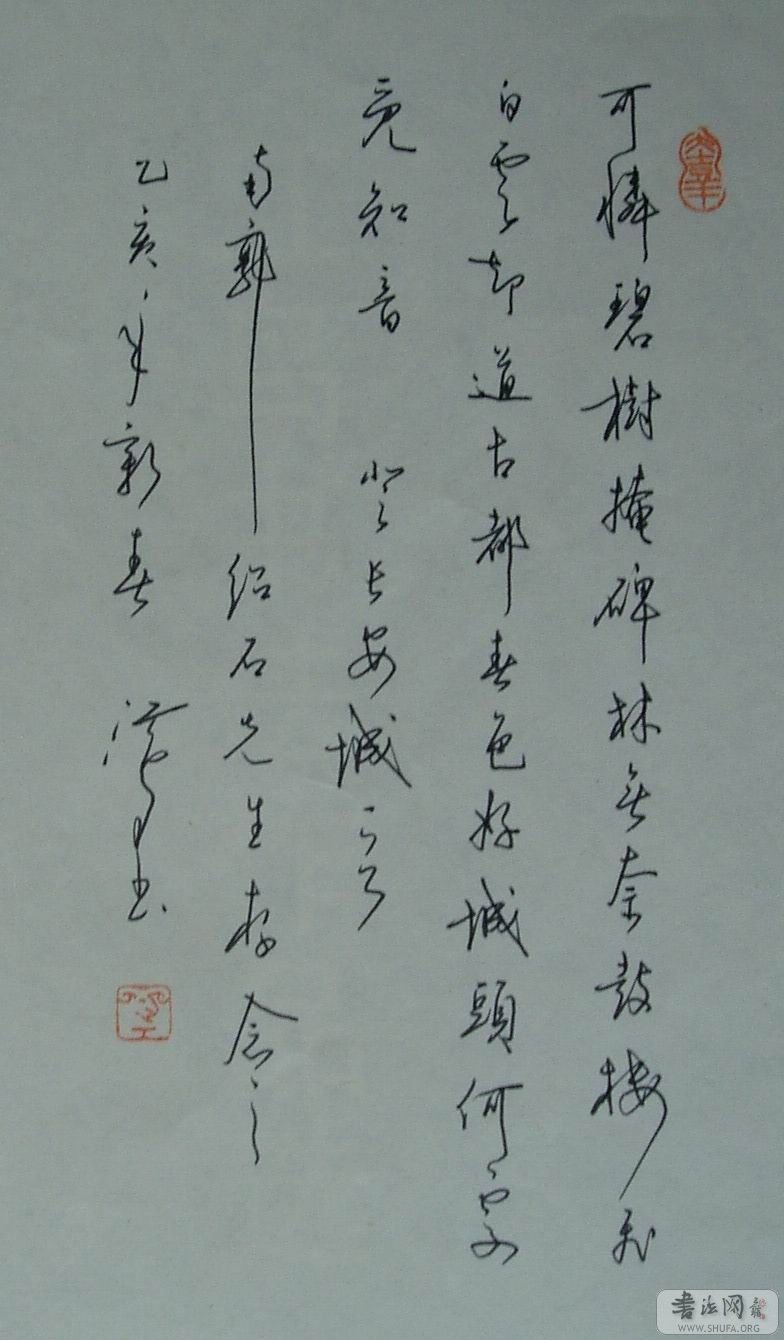 可憐碧樹掩碑林無奈鼓樓
白雲却道古都春色好城頭何家
覓知音 登長安城
南郭 紹石先生存念之
乙亥年新春
書法网
WWW.SHUFA.ORG